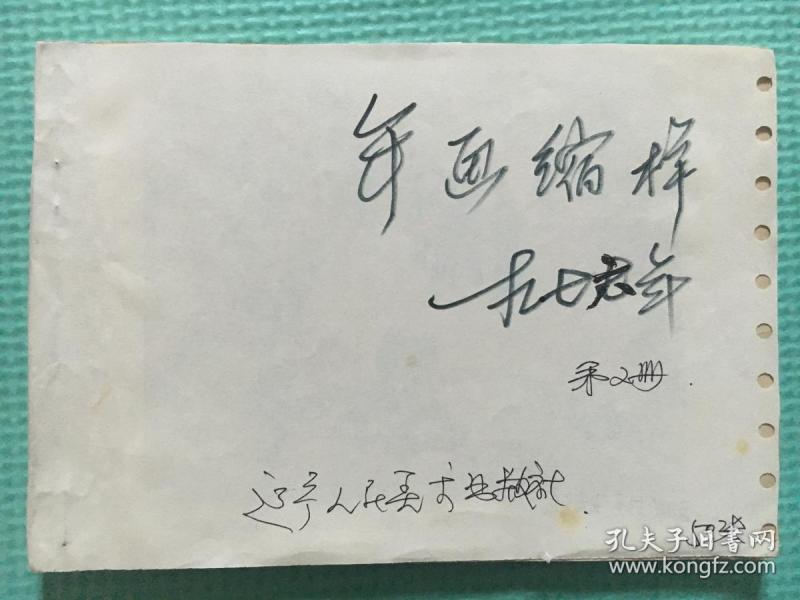 年画缩样
一九七六年
第2册.
辽宁人民美术出版社.
52张
孔夫子旧书网
www.kongfz.com